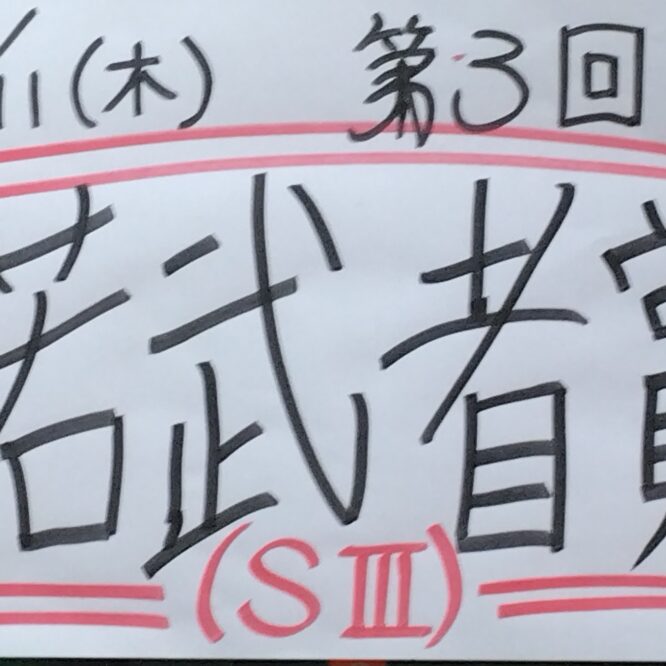 /11(木) 第3回
若武者賞
(SⅢ)